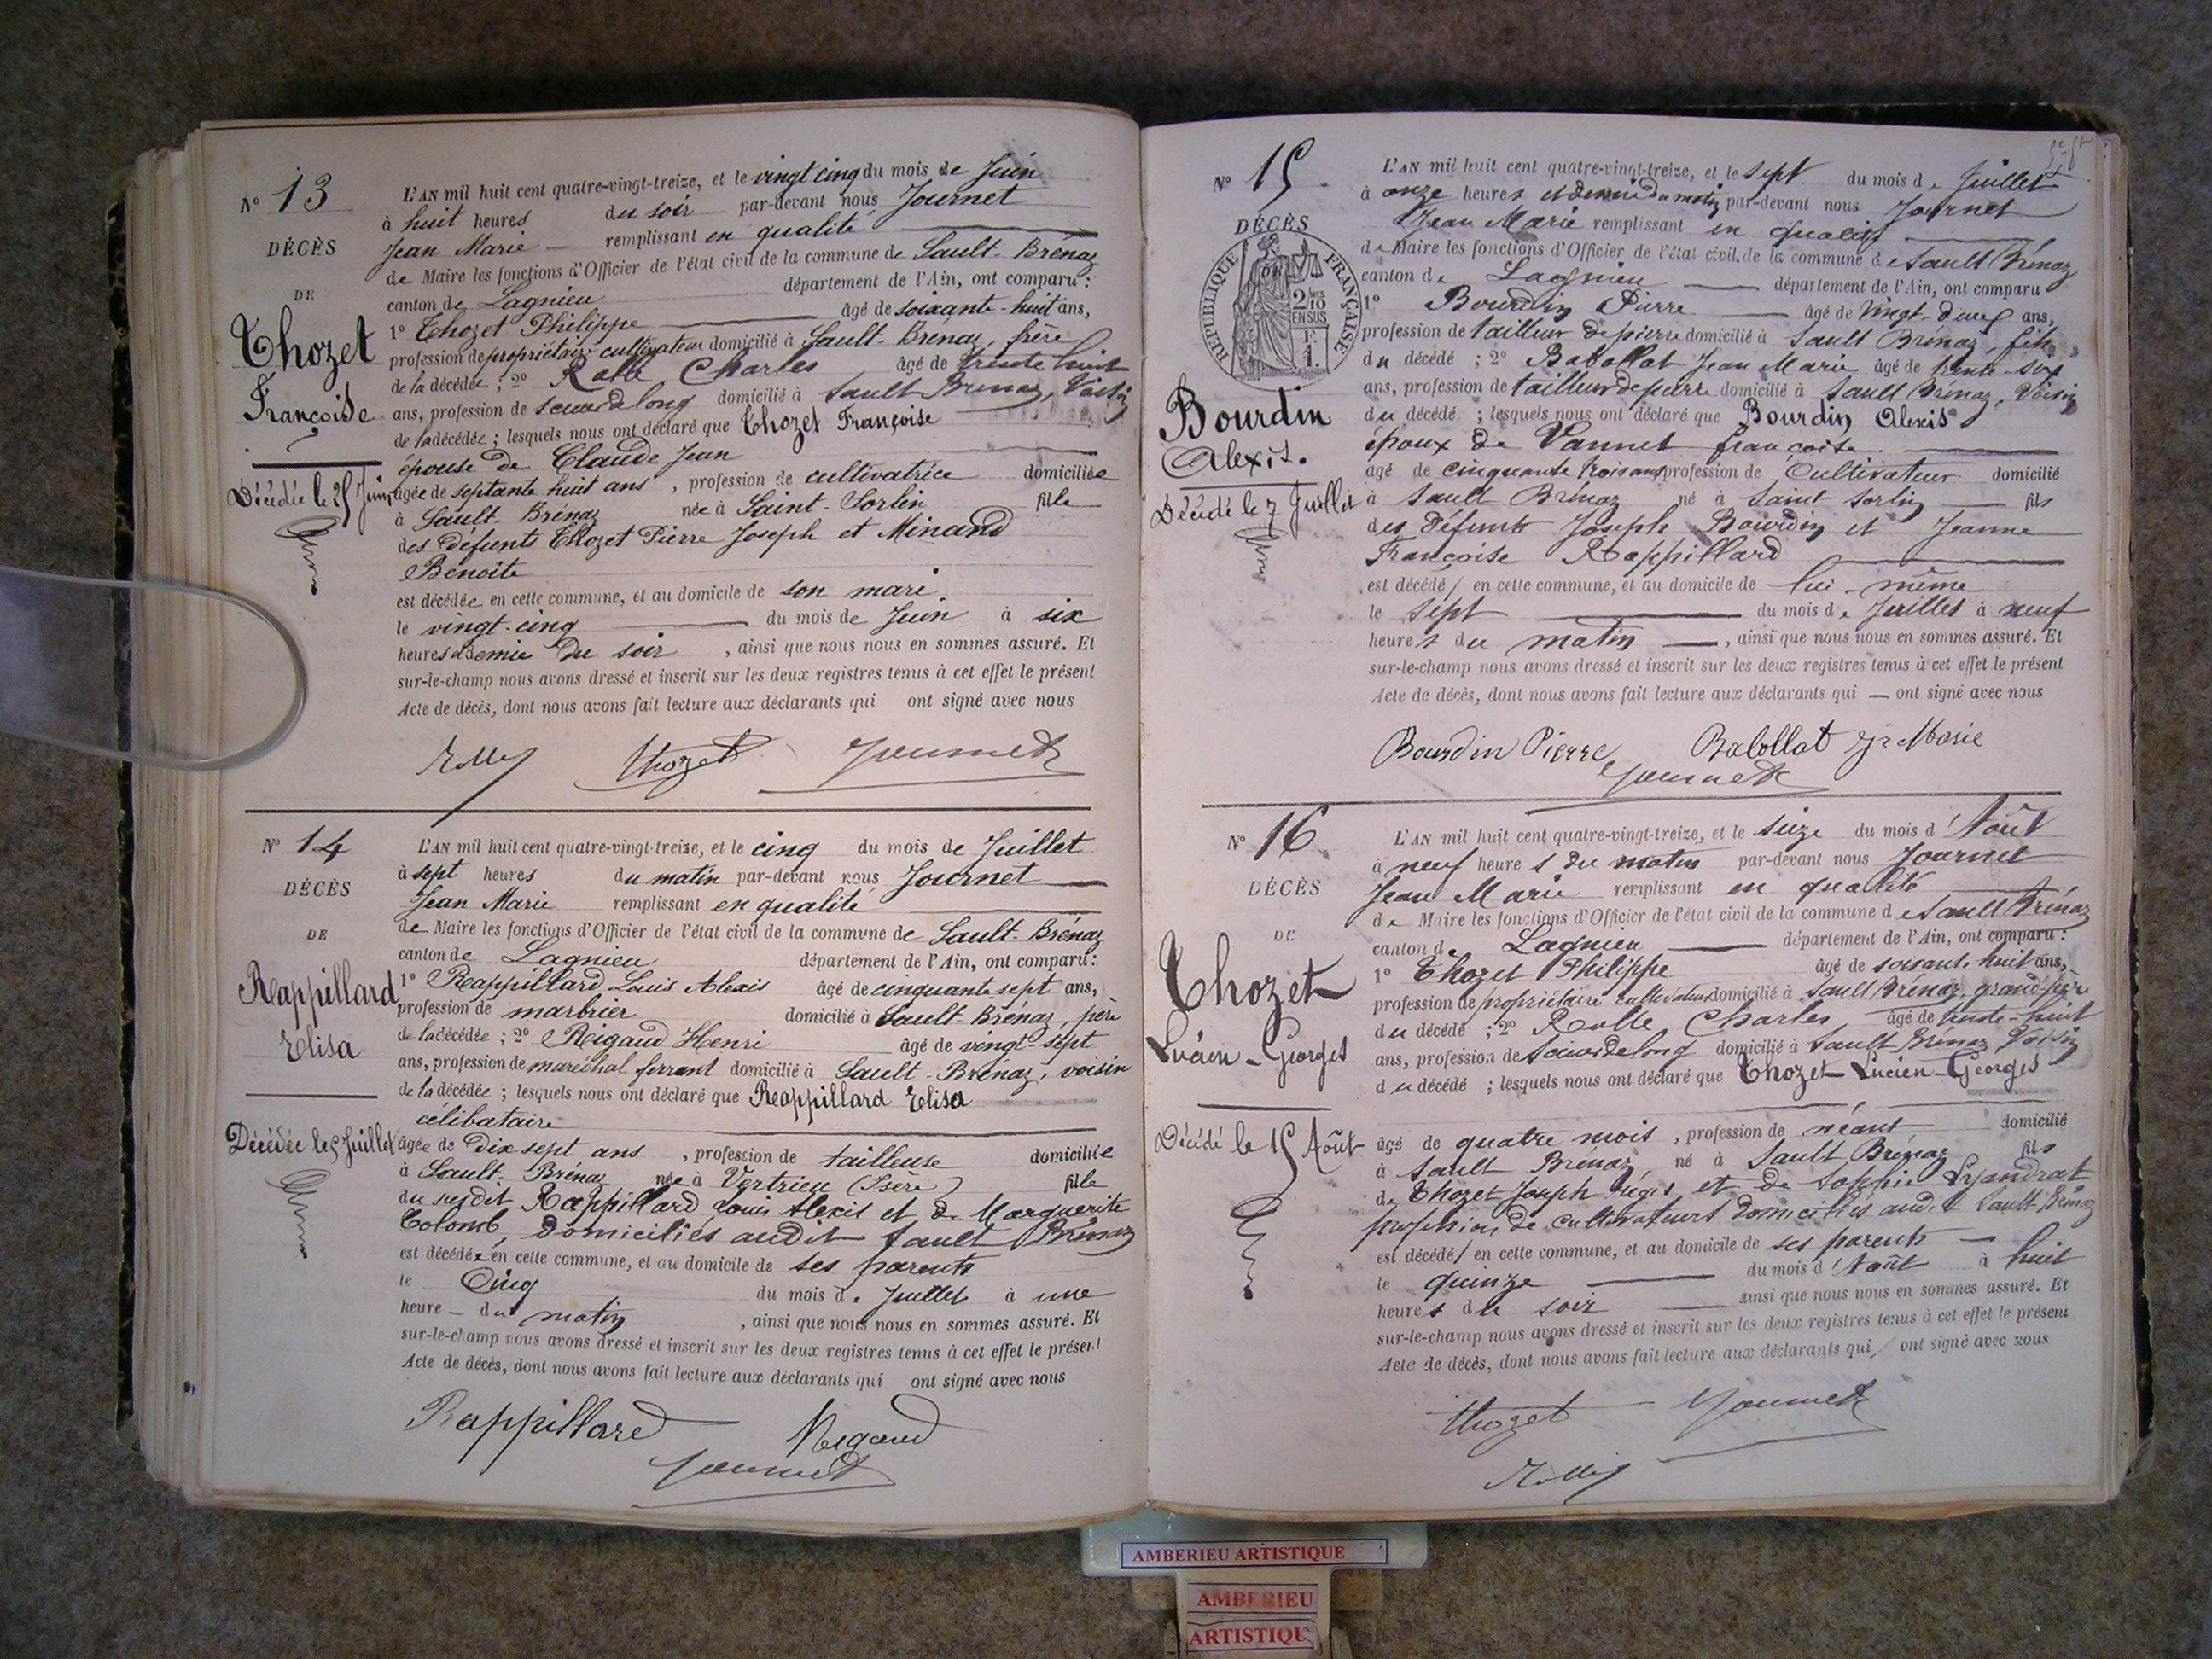 N° 13
DÉCÈS
DE
Thozet
Françoise
Décédée le 25 Juin
L'AN mil huit cent quatre-vingt-treize, et le vingt cinq du mois de Juin
à huit heures du soir par-devant nous Journet
Jean Marie remplissant en qualité
de Maire les fonctions d'Officier de l'état civil de la commune de Sault-Brénaz
canton de Lagnieu département de l'Ain, ont comparu :
1° Thozet Philippe âgé de soixante-huit ans,
profession de propriétaire cultivateur domicilié à Sault-Brénaz, frère
de la décédée ; 2° Rolle Charles âgé de trente huit
ans, profession de scieur de long domicilié à Sault Brénaz, Voisin
de la décédée ; lesquels nous ont déclaré que Thozet Françoise
épouse de Claude Jean
âgée de septante huit ans, profession de cultivatrice domiciliée
à Sault-Brénaz née à Saint-Sorlin fille
des défunts Thozet Pierre Joseph et Minand
Benoite
est décédée en cette commune, et au domicile de son mari
le vingt-cinq du mois de Juin à six
heures et demie du soir, ainsi que nous nous en sommes assuré. Et
sur-le-champ nous avons dressé et inscrit sur les deux registres tenus à cet effet le présent
Acte de décès, dont nous avons fait lecture aux déclarants qui ont signé avec nous
Thozet Journet
N° 14
DÉCÈS
DE
Rappillard
Elisa
Décédée le 5 Juillet
L'AN mil huit cent quatre-vingt-treize, et le cinq du mois de Juillet
à sept heures du matin par-devant nous Journet
Jean Marie remplissant en qualité
de Maire les fonctions d'Officier de l'état civil de la commune de Sault-Brénaz
canton de Lagnieu département de l'Ain, ont comparu :
1° Rappillard Louis Alexis âgé de cinquante sept ans,
profession de marbrier domicilié à Sault-Brénaz, père
de la décédée ; 2° Rigaud Henri âgé de vingt-sept
ans, profession de maréchal ferrant domicilié à Sault-Brénaz, voisin
de la décédée ; lesquels nous ont déclaré que Rappillard Elisa
célibataire
âgée de Dix sept ans, profession de tailleuse domiciliée
à Sault-Brénaz née à Vertrieu (Isère) fille
du susdit Rappillard Louis Alexis et de Marguerite
Colomb, domiciliés audit Sault Brénaz
est décédée en cette commune, et au domicile de ses parents
le Cinq du mois de Juillet à une
heure - du matin, ainsi que nous nous en sommes assuré. Et
sur-le-champ nous avons dressé et inscrit sur les deux registres tenus à cet effet le présent
Acte de décès, dont nous avons fait lecture aux déclarants qui ont signé avec nous
Rappillard Rigaud
Journet
N° 15
DÉCÈS
DE
RÉPUBLIQUE FRANÇAISE
2/10 MES
EN SUS
Bourdin
Alexis.
Décédé le 7 Juillet
L'AN mil huit cent quatre-vingt-treize, et le sept du mois de Juillet
à onze heures et demie du matin par-devant nous Journet
Jean Marie remplissant en qualité
de Maire les fonctions d'Officier de l'état civil de la commune de Sault Brénaz
canton de Lagnieu département de l'Ain, ont comparu
1° Bourdin Pierre âgé de Vingt-deux ans,
profession de tailleur de pierre domicilié à Sault Brénaz, fils
du décédé ; 2° Babollat Jean Marie âgé de trente-six
ans, profession de tailleur de pierre domicilié à Sault Brénaz, Voisin
du décédé ; lesquels nous ont déclaré que Bourdin Alexis
époux de Vannet françoise
âgé de cinquante trois ans profession de Cultivateur domicilié
à Sault Brénaz né à Saint Sorlin fils
des défunts Joseph Bourdin et Jeanne
Françoise Rappillard
est décédé en cette commune, et au domicile de lui-même
le Sept du mois de Juillet à neuf
heures du matin, ainsi que nous nous en sommes assuré. Et
sur-le-champ nous avons dressé et inscrit sur les deux registres tenus à cet effet le présent
Acte de décès, dont nous avons fait lecture aux déclarants qui — ont signé avec nous
Bourdin Pierre Babollat Marie
Journet
N° 16
DÉCÈS
DE
Thozet
Lucien-Georges
Décédé le 15 Août
L'AN mil huit cent quatre-vingt-treize, et le seize du mois d'Août
à neuf heures du matin par-devant nous Journet
Jean Marie remplissant en qualité
de Maire les fonctions d'Officier de l'état civil de la commune de Sault Brénaz
canton de Lagnieu département de l'Ain, ont comparu :
1° Thozet Philippe âgé de soixante huit ans,
profession de propriétaire cultivateur domicilié à Sault Brénaz, grand père
du décédé ; 2° Rolle Charles âgé de trente-huit
ans, profession de scieur de long domicilié à Sault Brénaz Voisin
du décédé ; lesquels nous ont déclaré que Thozet Lucien-Georges
âgé de quatre mois, profession de néant domicilié
à Sault Brénaz, né à Sault Brénaz fils
de Thozet Joseph régis et de Sophie Lyandrat
profession de cultivateurs domiciliés audit Sault-Brénaz
est décédé en cette commune, et au domicile de ses parents
le quinze du mois d'Août à huit
heures du soir ainsi que nous nous en sommes assuré. Et
sur-le-champ nous avons dressé et inscrit sur les deux registres tenus à cet effet le présent
Acte de décès, dont nous avons fait lecture aux déclarants qui ont signé avec nous
Thozet Journet
AMBERIEU ARTISTIQUE
AMBERIEU
ARTISTIQUE